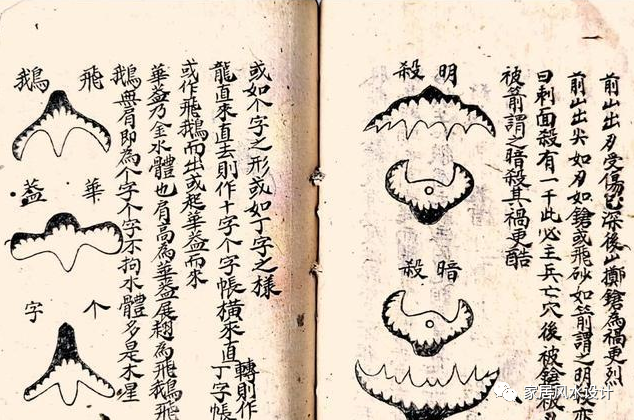 前山出刃受傷已深後山擲鎗為禍更烈
前山出尖如刃如鎗或飛砂如箭謂之明殺亦
曰刺面殺有一千此必主兵亡穴後被鎗
被箭謂之暗殺其禍更酷
明殺
暗殺
或如个字之形或如丁字之樣
龍直來直去則作十字个字帳橫來直轉則作丁字帳
或作飛鵝而出或起華蓋而來
華蓋乃金水體也肩高為華蓋展翅為飛鵝飛
鵝無肩即為个字个字不拘水體多是木星
飛鵝
華蓋
个字
家居风水设计